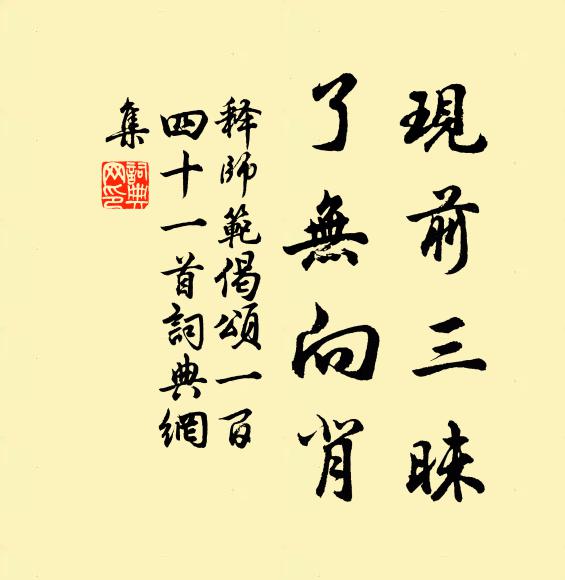 現前三昧
了無向背
释師範偈頌一百
四十一首詞典網
集
詞典
网印